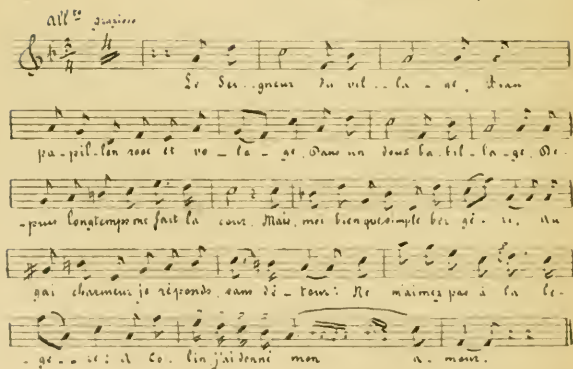 All.to grazioso
Le Sei..gneur du vil..la - ge, Fran
pa-pil-lon rose et vo-la-ge, Dans un doux ba.bil-la-ge, De-
-puis longtemps me fait la cour. Mais, moi bien que simple ber.gè-re, au
gai charmeur je réponds, sans dé-tour: Ne m'aimez pas à la lé-
-gè-re: à Co-lin j'ai donné mon a-mour.